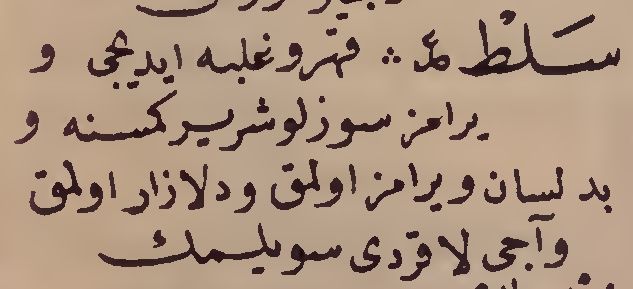 سَلْطْ ع؞ قهر و غلبه ايديجى و
يرامز سوزلو شرير كمسنه و
بد لسان و يرامز اولمق و دلازار اولمق
و آجى لاقردى سويلمك